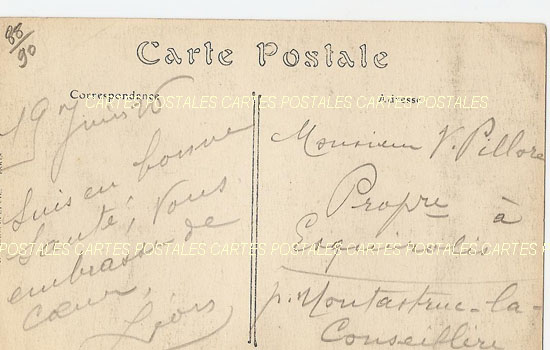 88/90
Carte Postale
Correspondance
Adresse
CARTES POSTALES CARTES POSTALES CARTES POSTALES CARTES POSTALES
19 Juin 15
Suis en bonne
Santé, Vous
embrasse de
cœur,
Léon
Monsieur V. Pillore
Propre à
p. Montastruc-la-
Conseillère
CARTES POSTALES CARTES POSTALES CARTES POSTALES CARTES POSTALES